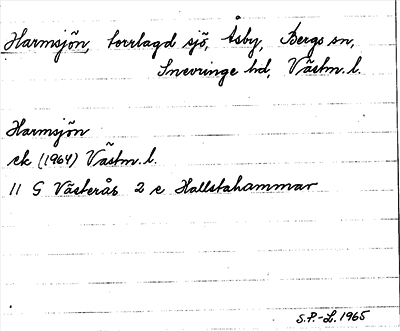 Harmsjön, torrlagd sjö, Åsby, Bergs sn,
Snevringe hd, Västm. l.
Harmsjön
ek (1964) Västm. l.
11 G Västerås 2 c Hallstahammar
S.P.-L. 1965